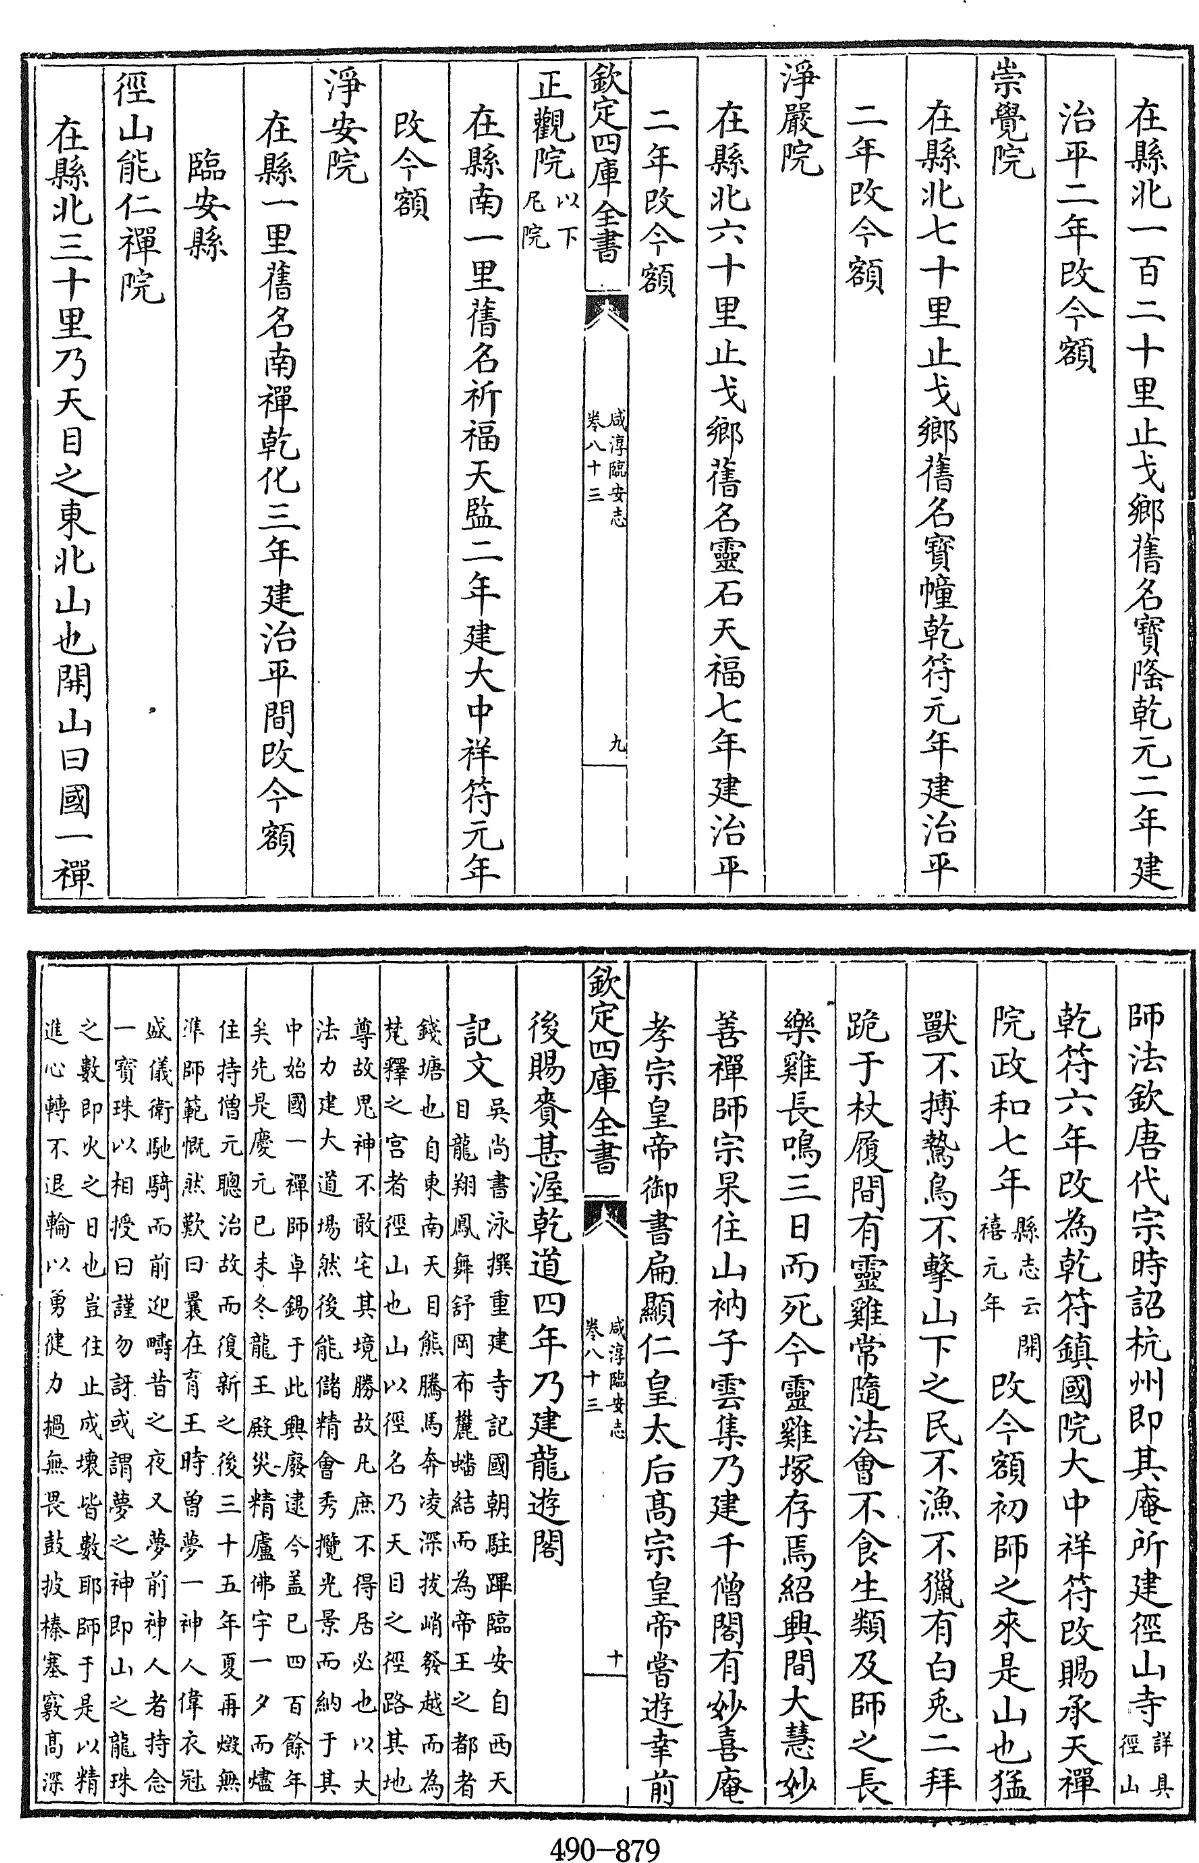 在縣北一百二十里止戈鄉舊名寳隆乾元二年建
治平二年改今額
崇覺院
在縣北七十里止戈鄉舊名寳幢乾符元年建治平
二年改今額
淨嚴院
在縣北六十里止戈鄉舊名靈石天福七年建治平
二年改今額
欽定四庫全書
咸淳臨安志
卷八十三
九
正觀院以下
尼院
在縣南一里舊名祈福天監二年建大中祥符元年
改今額
淨安院
在縣一里舊名南禪乾化三年建治平間改今額
臨安縣
徑山能仁禪院
在縣北三十里乃天目之東北山也開山曰國一禪
師法欽唐代宗時詔杭州即其庵所建徑山寺詳具
徑山
乾符六年改為乾符鎮國院大中祥符改賜承天禪
院政和七年縣志云開
禧元年改今額初師之來是山也猛
獸不搏鷙鳥不擊山下之民不漁不獵有白兎二拜
跪于杖履間有靈雞常隨法會不食生類及師之長
樂雞長鳴三日而死今靈雞塚存焉紹興間大慧妙
善禪師宗杲住山衲子雲集乃建千僧閣有妙喜庵
孝宗皇帝御書扁顯仁皇太后髙宗皇帝嘗遊幸前
欽定四庫全書
咸淳臨安志
卷八十三
十
後賜賚甚渥乾道四年乃建龍遊閣
記文吳尚書泳撰重建寺記國朝駐蹕臨安自西天
目龍翔鳳舞舒岡布麓蟠結而為帝王之都者
錢塘也自東南天目熊騰馬奔凌深拔峭發越而為
梵釋之宫者徑山也山以徑名乃天目之徑路其地
尊故鬼神不敢宅其境勝故凡庶不得居必也以大
法力建大道塲然後能儲精會秀攬光景而納于其
中始國一禪師卓錫于此興廢逮今盖已四百餘年
矣先是慶元己未冬龍王殿災精廬佛宇一夕而燼
住持僧元聰治故而復新之後三十五年夏再燬無
準師範慨然歎曰曩在育王時曾夢一神人偉衣冠
盛儀衛馳騎而前迎疇昔之夜又夢前神人者持念
一寳珠以相授曰謹勿訝或謂夢之神即山之龍珠
之數即火之日也豈住止成壞皆數耶師于是以精
進心轉不退輪以勇健力撾無畏鼓披榛塞竅髙深
490-879